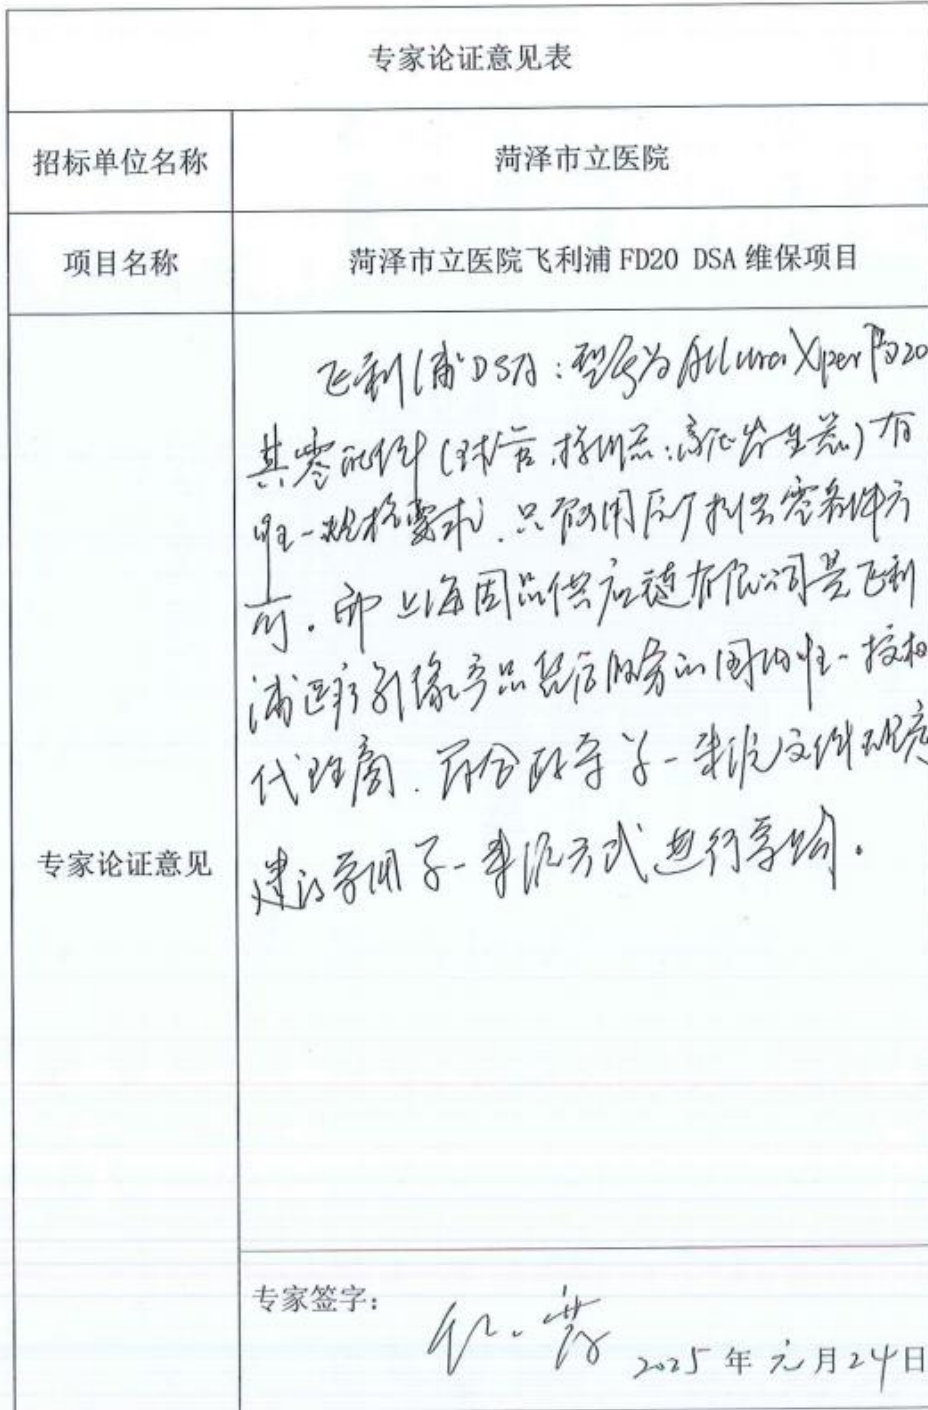 专家论证意见表
招标单位名称 菏泽市立医院
项目名称 菏泽市立医院飞利浦 FD20 DSA 维保项目
专家论证意见
飞利浦DSA:型号为Allura Xper FD20
其零配件(球管、探测器、高压发生器)有
唯一规格要求.只能用原厂提供零备件方
可。而上海国品供应链有限公司是飞利
浦医疗影像产品售后服务的国内唯一授权
代理商.符合政采单一来源文件规定
建议采用单一来源方式进行采购。
专家签字:
2025年元月24日